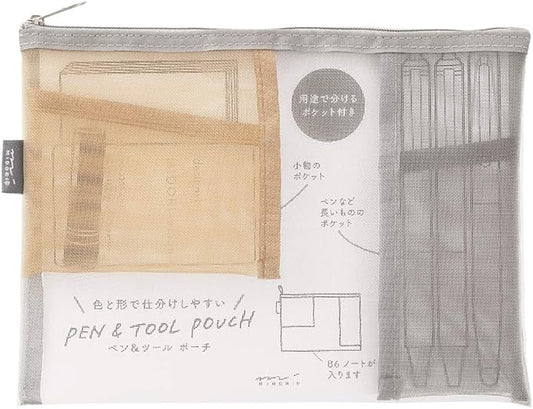 用途で分ける
ポケット付き
小物の
ポケット
ペンなど
長いものの
ポケット
MIDORI
色と形で仕分けしやすい
PEN & TOOL POUCH
ペン&ツール ポーチ
B6 ノートが
入ります
MIDORI